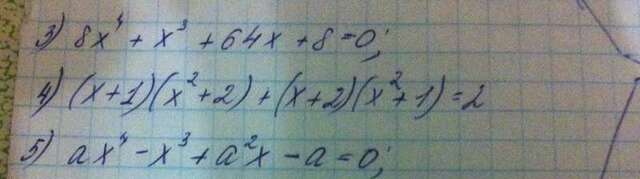 3) 8x⁴ + x³ + 64x + 8 = 0;
4) (x+1)(x²+2) + (x+2)(x²+1) = 2
5) ax⁴ - x³ + a²x - a = 0;